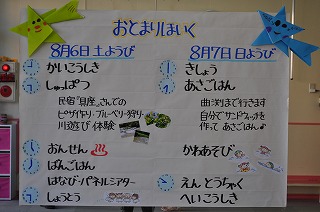 おとまりほいく
8月6日 土ようび
かいこうしき
しゅっぱつ
民宿“貝座”さんでの
ピザ作り・ブルーベリー狩り
川遊び体験
おんせん♨
ばんごはん
はなび・パネルシアター
しょうとう
8月7日 日ようび
きしょう
あさごはん
曲渕まで行きます
自分でサンドウィッチを
作って あさごはん♪
かわあそび
えんとうちゃく
へいこうしき